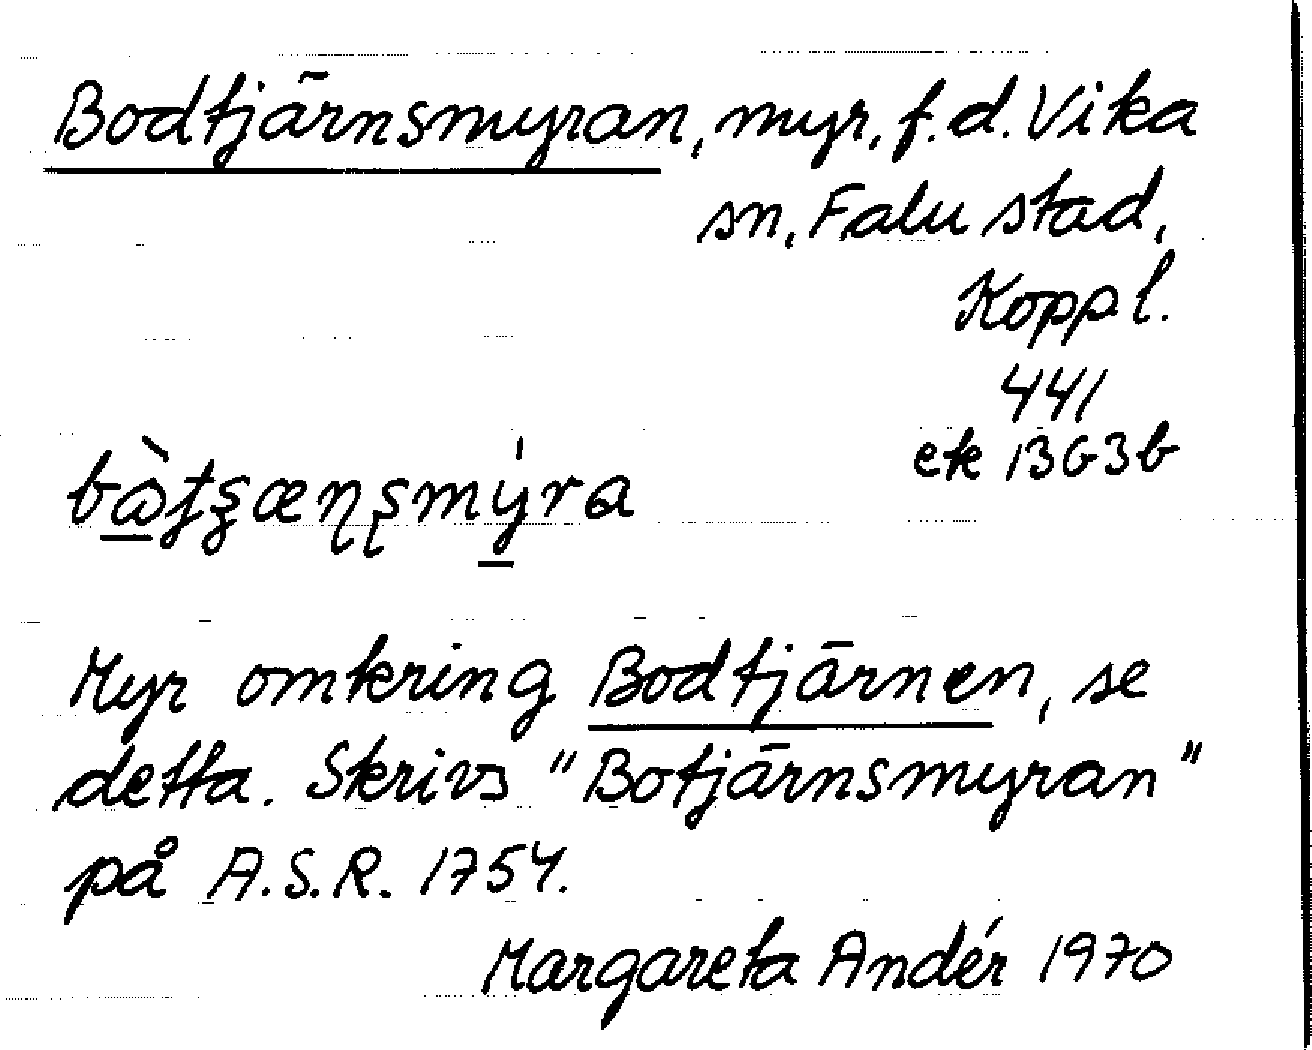 Bodtjärnsmyran, myr, f.d. Vika
sn, Falu stad,
Koppl.
441
ek 13G3b
Myr omkring Bodtjärnen, se
detta. Skrivs "Botjärnsmyran"
på A.S.R. 1754.
Margareta Andér 1970